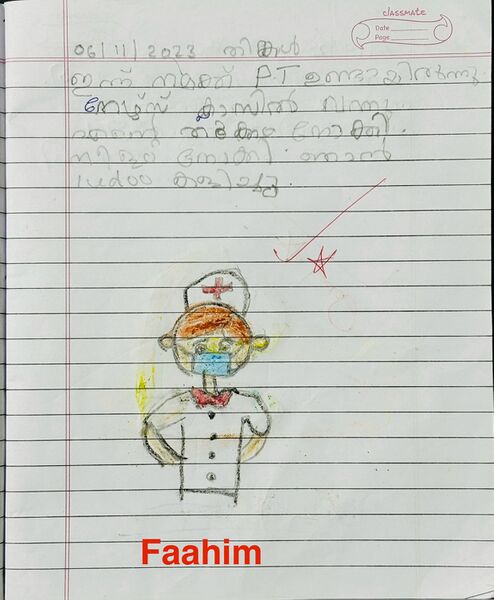 classmate
Date
Page
06/11/2023 തിങ്കൾ
ഇന്ന് നമുക്ക് P.T ഉണ്ടായിരുന്നു
നേഴ്സ് ക്ലാസിൽ വന്നു
എന്റെ തൂക്കം നോക്കി.
നീളം നോക്കി ഞാൻ
ludoo കളിച്ചു.
Faahim